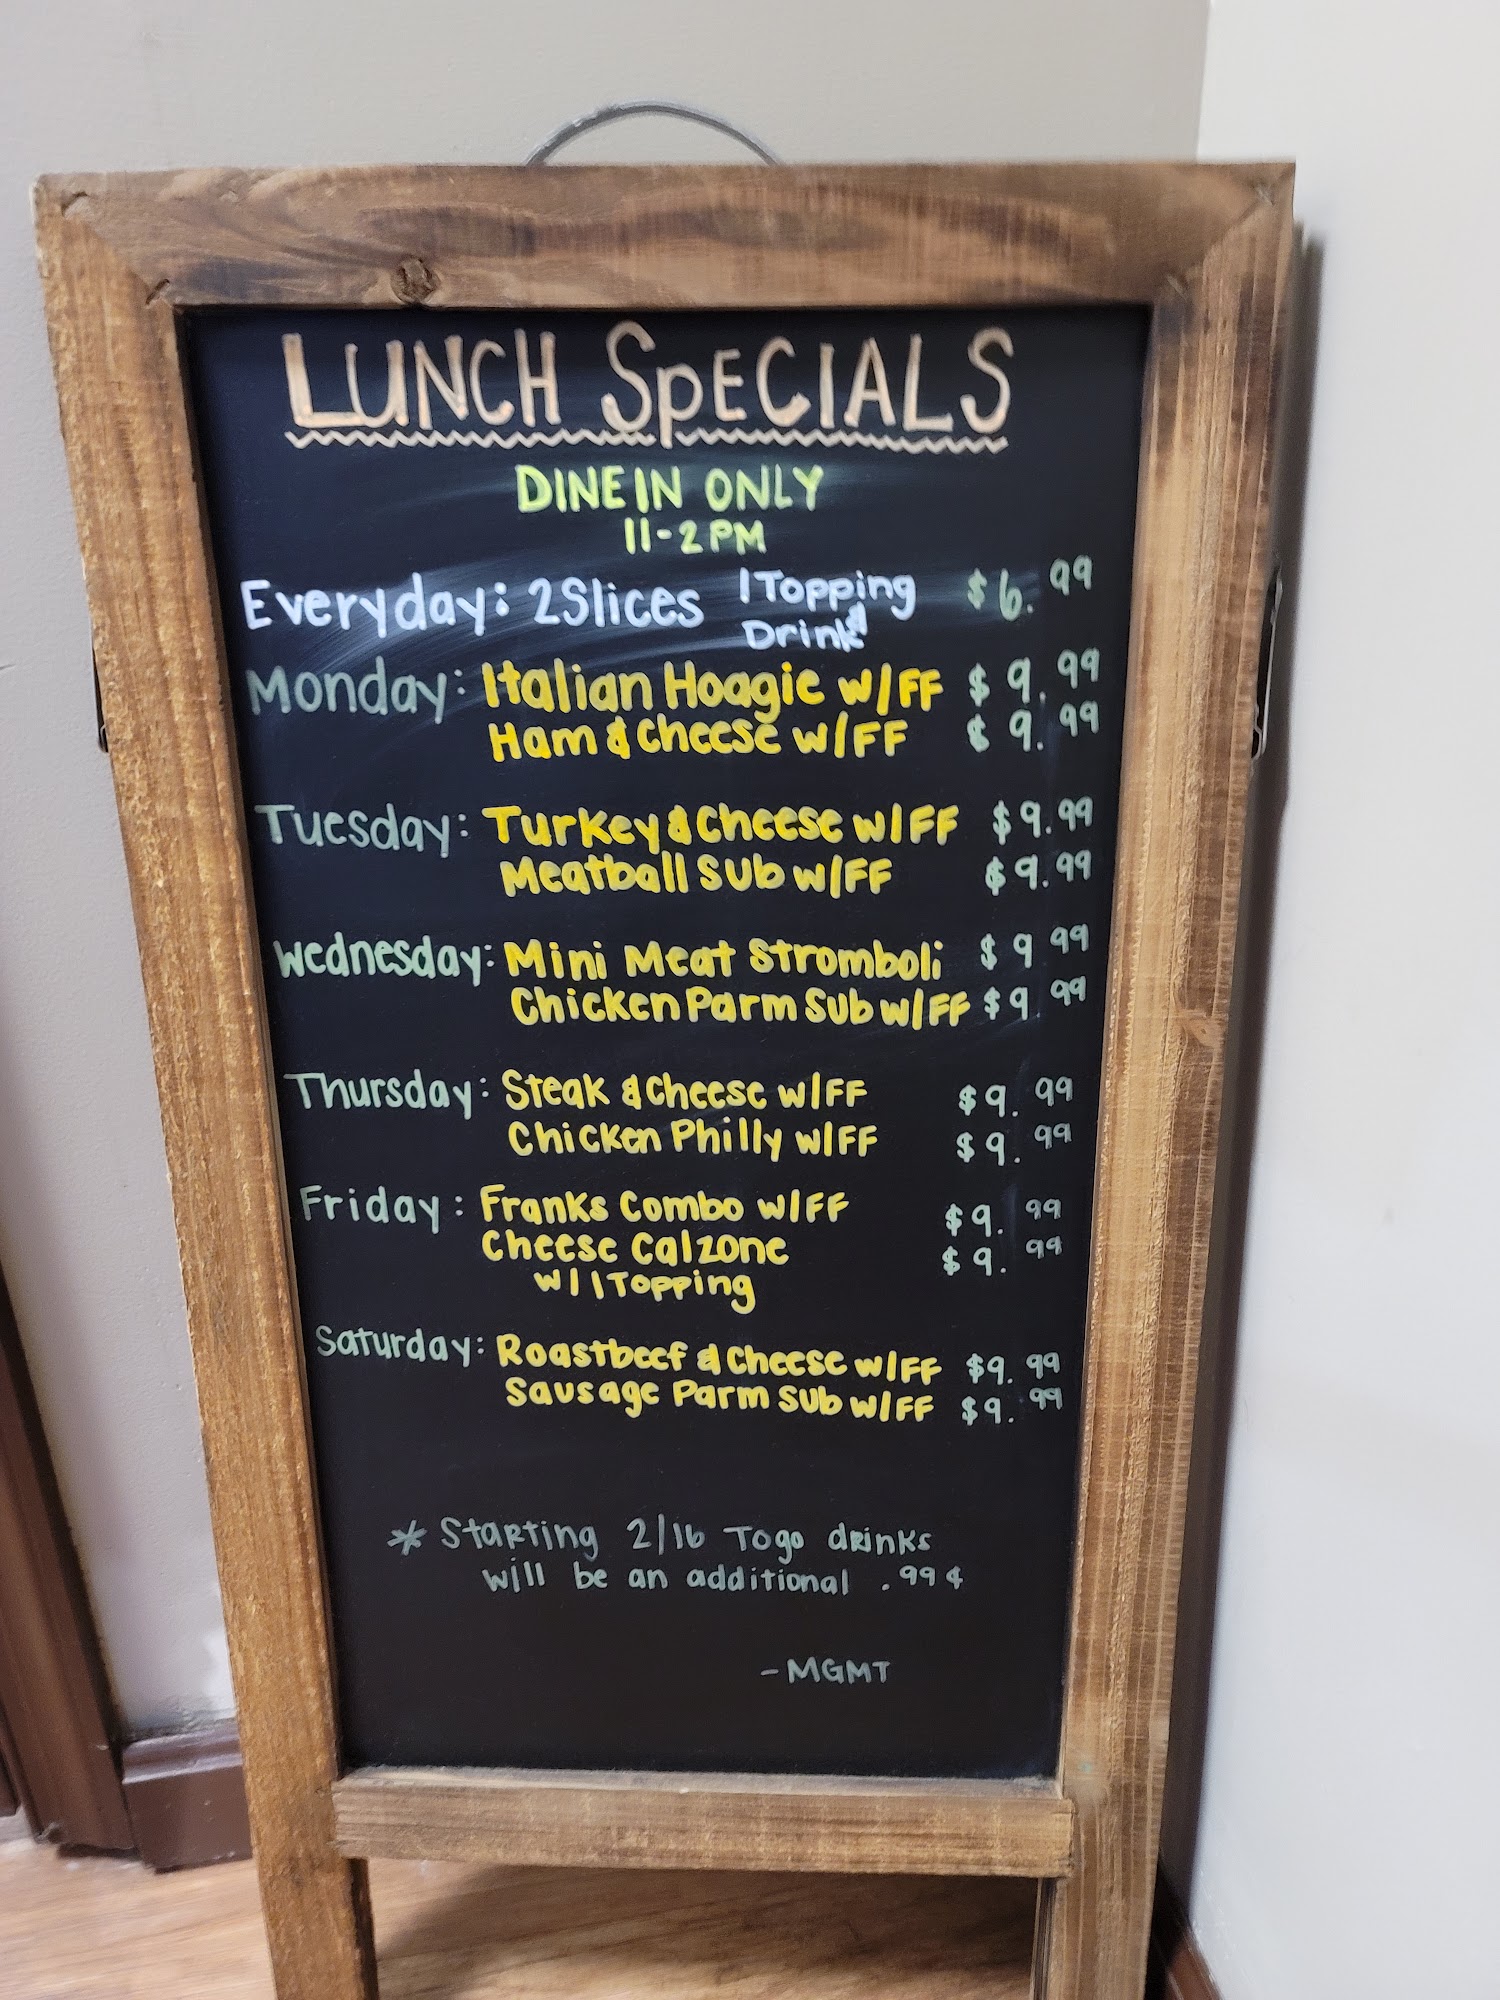 LUNCH SpECIALS
DINE IN ONLY
11-2PM
Everyday: 2Slices 1 Topping & Drink $6.99
Monday: Italian Hoagie w/FF $9.99
Ham & Cheese w/FF $9.99
Tuesday: Turkey & Cheese w/FF $9.99
Meatball Sub w/FF $9.99
Wednesday: Mini Meat Stromboli $9 99
Chicken Parm Sub w/FF $9.99
Thursday: Steak & Cheese w/FF $9.99
Chicken Philly w/FF $9.99
Friday: Franks Combo w/FF $9.99
Cheese Calzone $9.99
w/ 1 Topping
Saturday: Roastbeef & Cheese w/FF $9.99
Sausage Parm Sub w/FF $9.99
* Starting 2/16 Togo drinks
will be an additional .99¢
-MGMT